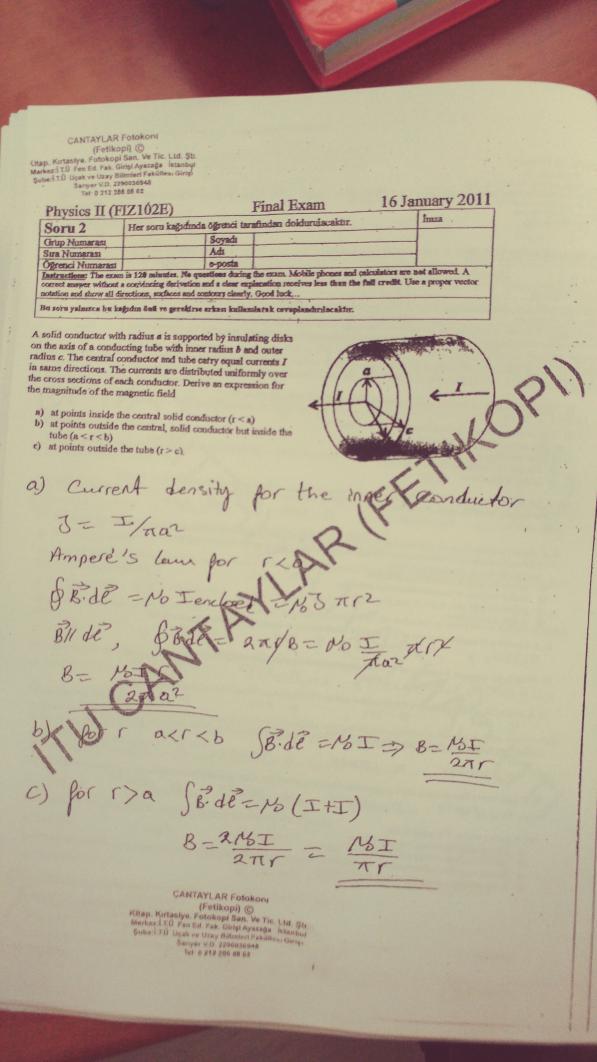 CANTAYLAR Fotokopi
(Fetikopi) ©
Kitap, Kırtasiye, Fotokopi San. Ve Tic. Ltd. Şti.
Merkez:İ.T.Ü Fen Ed. Fak. Girişi Ayazağa İstanbul
Şube:İ.T.Ü Uçak ve Uzay Bilimleri Fakültesi Girişi
Sarıyer V.D. 2290036948
Tel: 0 212 286 68 63
Physics II (FIZ102E) Final Exam 16 January 2011
Soru 2 Her soru kağıdında öğrenci tarafından doldurulacaktır. İmza
Grup Numarası Soyadı
Sıra Numarası Adı
Öğrenci Numarası e-posta
Instructions: The exam is 120 minutes. No questions during the exam. Mobile phones and calculators are not allowed. A
correct answer without a convincing derivation and a clear explanation receives less than the full credit. Use a proper vector
notation and show all directions, surfaces and contours clearly. Good luck...
Bu soru yalnızca bu kağıdın önü ve gerekirse arkası kullanılarak cevaplandırılacaktır.
A solid conductor with radius a is supported by insulating disks
on the axis of a conducting tube with inner radius b and outer
radius c. The central conductor and tube carry equal currents I
in same directions. The currents are distributed uniformly over
the cross sections of each conductor. Derive an expression for
the magnitude of the magnetic field
a) at points inside the central solid conductor (r < a)
b) at points outside the central, solid conductor but inside the
tube (a < r < b)
c) at points outside the tube (r > c).
a
I
I
c
a) Current density for the inner conductor
J = I/πa²
Ampere's law for r<a
∮B⃗·dl⃗ = μ₀ Ienclosed = μ₀ J πr²
B⃗ // dl⃗, ∮B⃗·dl⃗ = 2πr B = μ₀ I/πa² πr²
B = μ₀I r/2πa²
b) for r a<r<b ∫B⃗·dl⃗ = μ₀ I ⇒ B = μ₀I/2πr
c) for r>a ∫B⃗·dl⃗ = μ₀ (I+I)
B = 2μ₀I/2πr = μ₀I/πr
ITU CANTAYLAR (FETIKOPI)
CANTAYLAR Fotokopi
(Fetikopi) ©
Kitap, Kırtasiye, Fotokopi San. Ve Tic. Ltd. Şti.
Merkez:İ.T.Ü Fen Ed. Fak. Girişi Ayazağa İstanbul
Şube:İ.T.Ü Uçak ve Uzay Bilimleri Fakültesi Girişi
Sarıyer V.D. 2290036948
Tel: 0 212 286 68 63